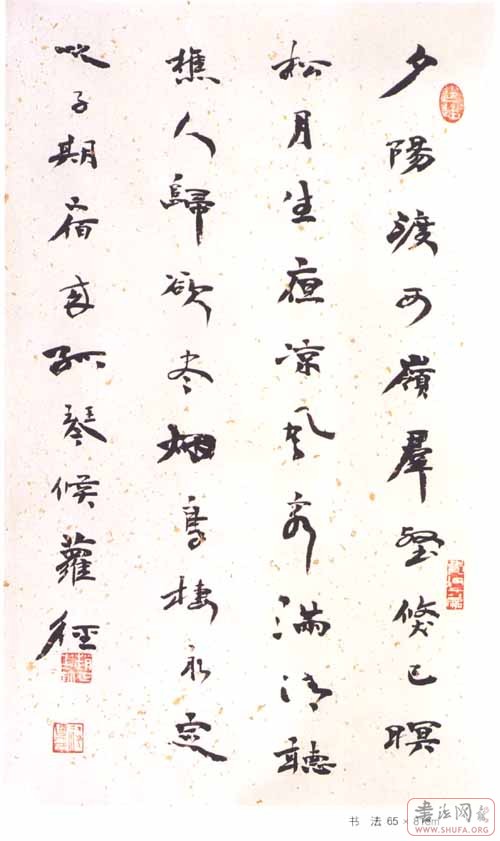 夕陽渡西嶺羣壑倏已暝
松月生夜凉風泉满清聽
樵人歸欲尽烟鳥棲初定
子期宿来孤琴候蘿徑
书 法 65 × 81cm
書法网
WWW.SHUFA.ORG